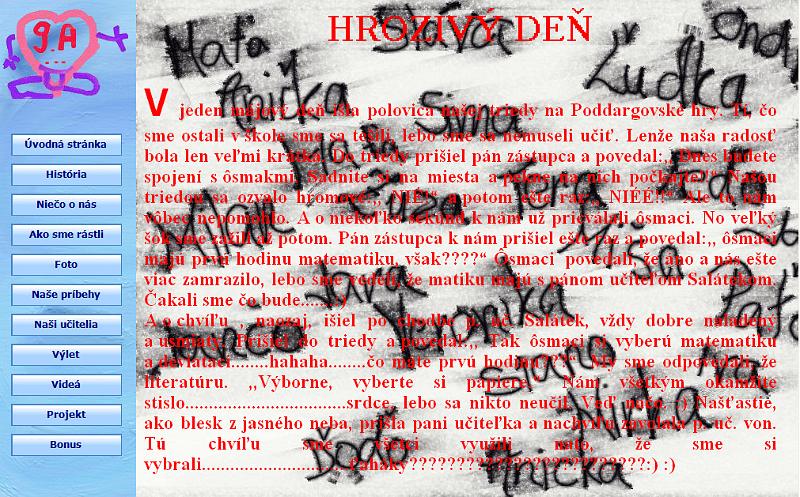 9.A
HROZIVÝ DEŇ
Úvodná stránka
História
Niečo o nás
Ako sme rástli
Foto
Naše príbehy
Naši učitelia
Výlet
Videá
Projekt
Bonus
V jeden májový deň išla polovica našej triedy na Poddargovské hry. Tí, čo
sme ostali v škole sme sa tešili, lebo sme sa nemuseli učiť. Lenže naša radosť
bola len veľmi krátka. Do triedy prišiel pán zástupca a povedal:,, Dnes budete
spojení s ôsmakmi. Sadnite si na miesta a pekne na nich počkajte!!" Našou
triedou sa ozvalo hromové:,, NIÉ!" a potom ešte raz:,, NIEÉ!!" Ale to nám
vôbec nepomohlo. A o niekoľko sekúnd k nám už privalali ôsmaci. No veľký
šok sme zažili až potom. Pán zástupca k nám prišiel ešte raz a povedal:,, ôsmaci
majú prvú hodinu matematiku, však????“ Ôsmaci povedali, že áno a nás ešte
viac zamrazilo, lebo sme vedeli, že matiku majú s pánom učiteľom Šalátekom.
Čakali sme čo bude......:)
A o chvíľu ,, naozaj, išiel po chodbe p. uč. Šalátek, vždy dobre naladený
a usmiaty. Prišiel do triedy a povedal:,, Tak ôsmaci si vyberú matematiku
a deviataci........hahaha........čo máte prvú hodinu???“ My sme odpovedali, že
literatúru. ,,Výborne, vyberte si papiere." Nám všetkým okamžite
stislo..................................srdce, lebo sa nikto neučil. Veď načo. :) Našťastie,
ako blesk z jasného neba, prišla pani učiteľka a nachvíľu zavolala p. uč. von.
Tú chvíľu sme všetci využili nato, že sme si
vybrali............................ťaháky????????????????????????:) :)
Maťa
Slávka
Ľudka
Anička
Sima
Veronika
Ninka
Anička